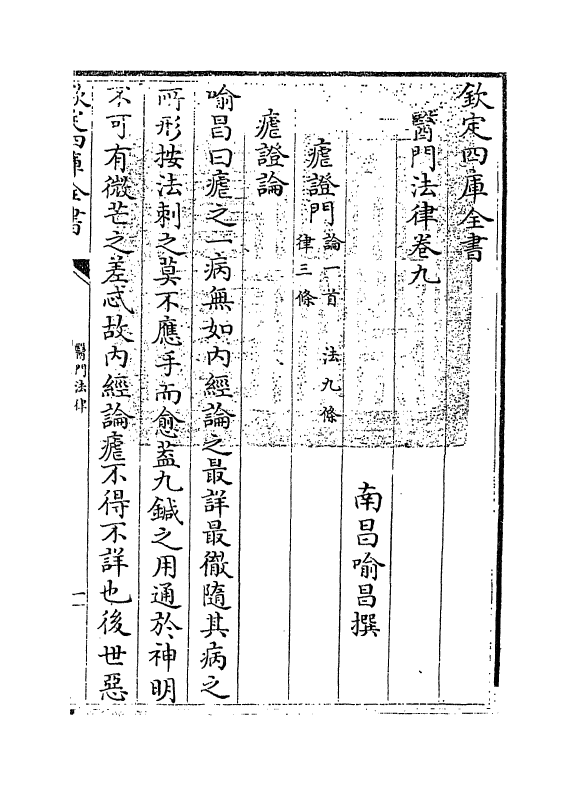 欽定四庫全書
醫門法律卷九
南昌喻昌撰
瘧證門論一首 法九條
律三條
瘧證論
喻昌曰瘧之一病無如內經論之最詳最徹隨其病之
所形按法刺之莫不應手而愈葢九鍼之用通於神明
不可有微芒之差忒故內經論瘧不得不詳也後世惡
欽定四庫全書
醫門法律
一